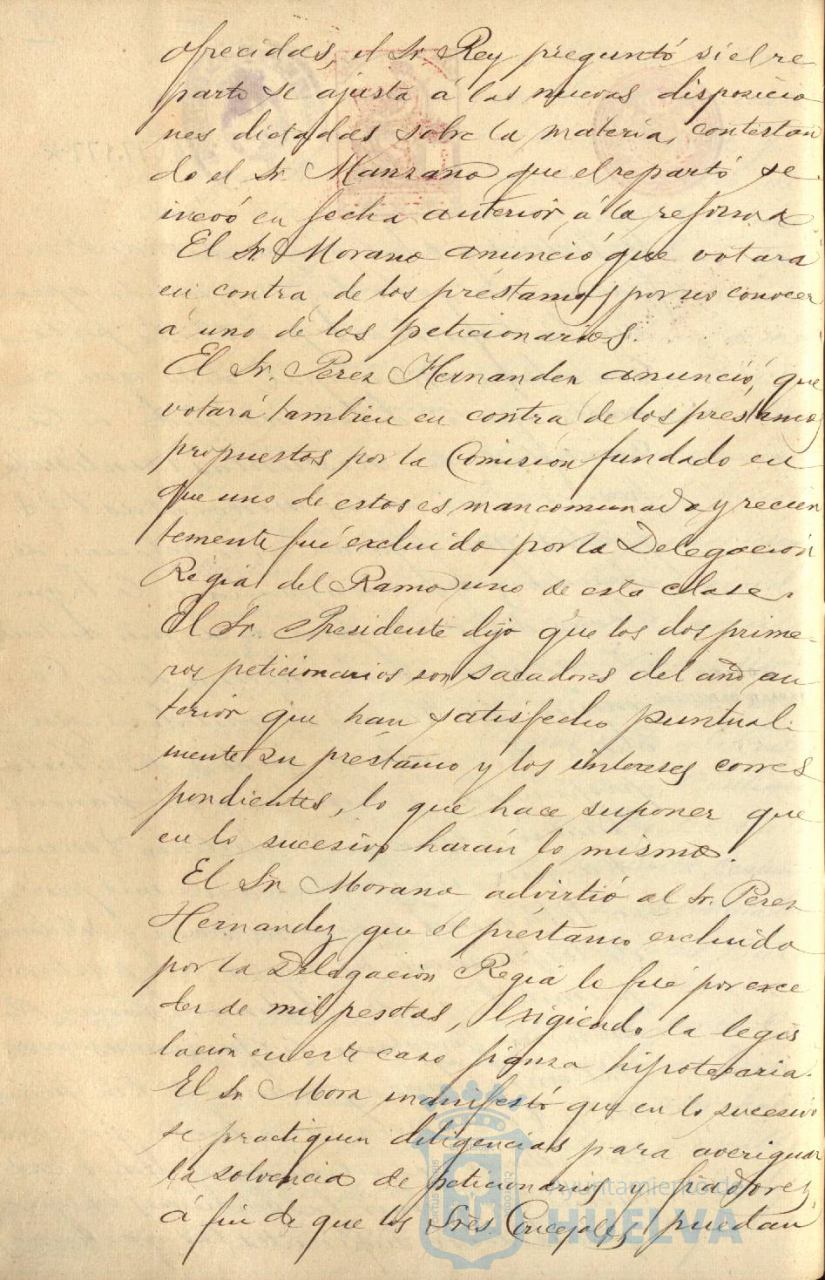 ofrecidas, el Sr. Rey preguntó si el re
parto se ajusta á las nuevas disposicio
nes dictadas sobre la materia, contestan
do el Sr. Manzano que el repartó se
inció en fecha anterior, á la reforma
El Sr. Morano anunció que votará
en contra de los préstamos por no conocer
á uno de los peticionarios.
El Sr. Perez Hernandez anunció, que
votará tambien en contra de los prestamos
propuestos por la Comisión fundado en
que uno de estos es mancomunado y recien
temente fué excluido por la Delegación
Régia del Ramo uno de esta clase.
El Sr. Presidente dijo que los dos prime-
ros peticionarios son sacadores del año an
terior que han satisfecho puntual-
mente su préstamo y los intereses corres
pondientes, lo que hace suponer que
en lo sucesivo harán lo mismo.
El Sr. Morano advirtió al Sr. Perez
Hernandez que el préstamo excluido
por la Delegación Régia lo fué por exce
der de mil pesetas, exigiendo la legis
lación en este caso fianza hipotecaria.
El Sr. Mora manifestó que en lo sucesivo
se practiquen diligencias para averiguar
la solvencia de peticionarios y fiadores,
á fin de que los Sres. Concejales puedan
ayuntamiento de
HUELVA